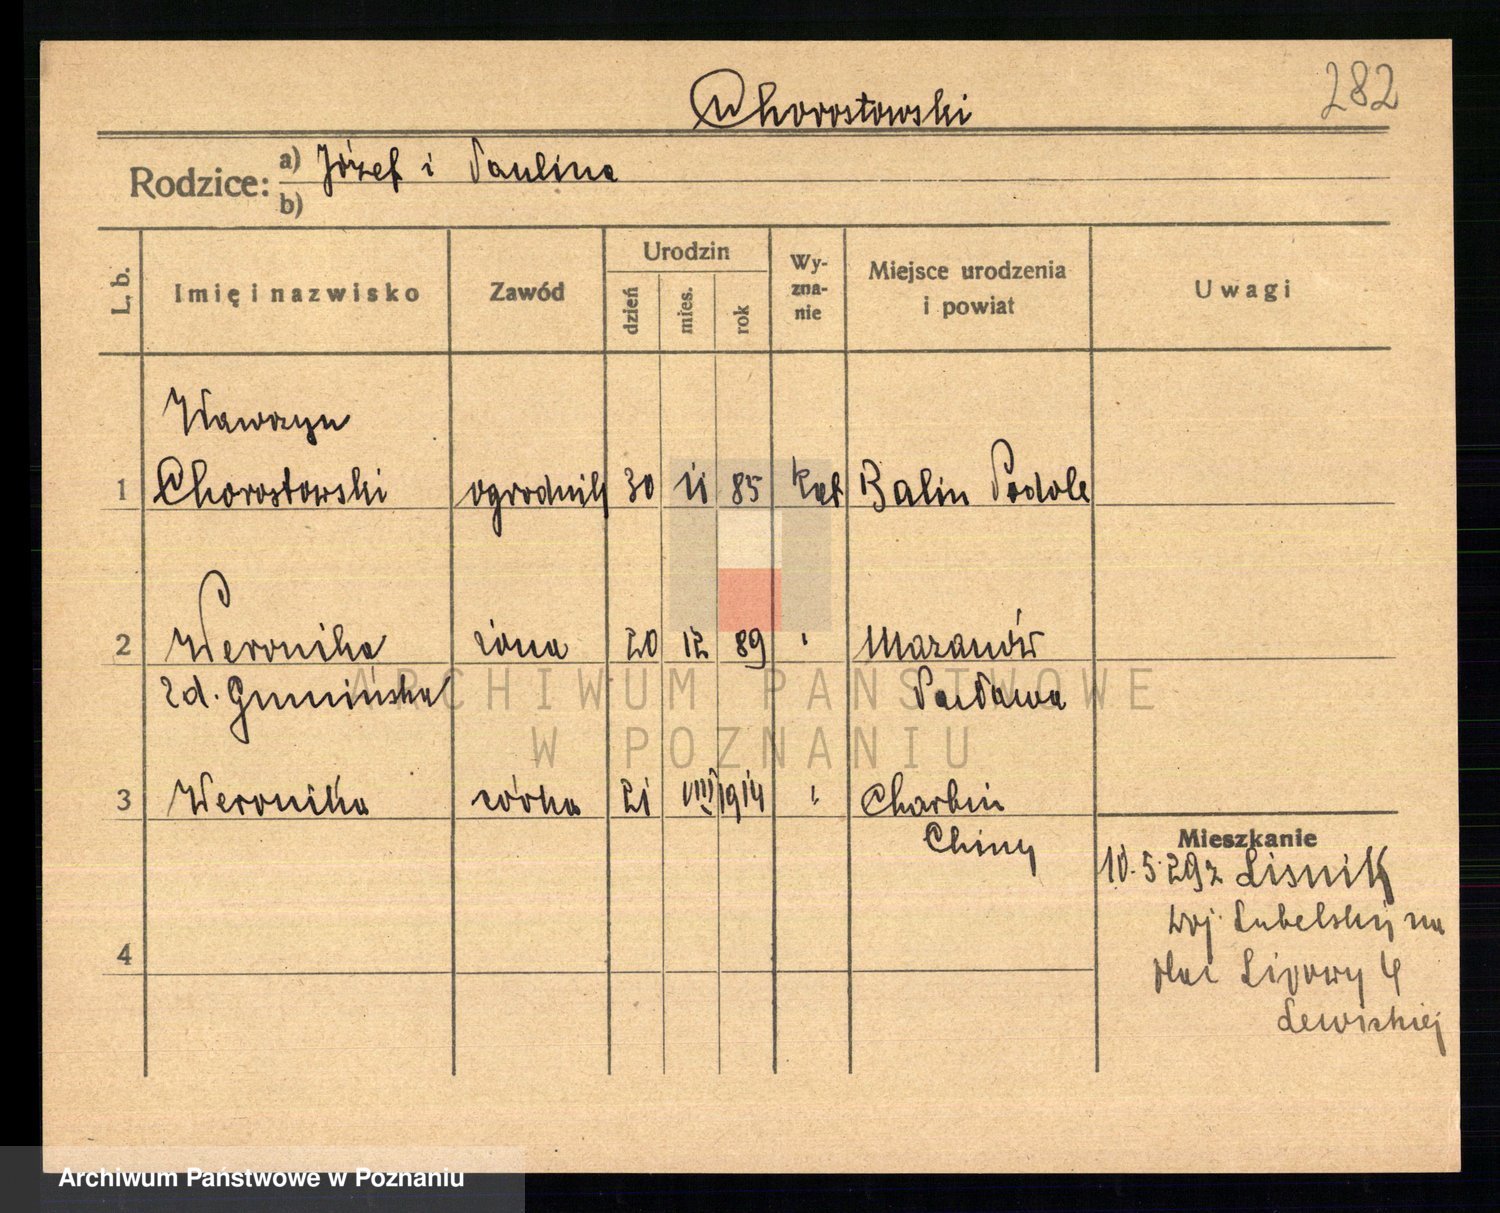 282
Chorostowski
Rodzice: a) Józef i Paulina
b)
L. b. Imię i nazwisko Zawód Urodzin dzień mies. rok Wyznanie Miejsce urodzenia i powiat Uwagi
Wawrzyn
1 Chorostowski ogrodnik 30 11 85 kat Balin Podole
2 Weronika żona 20 12 89 " Mazanów
zd. Gumińska
3 Weronika córka 21 VIII 1914 " Charbin
Chiny
Mieszkanie
10.5.29 z Lisnik
woj. Lubelskiej na
plac Lipowy 4
4
ARCHIWUM PAŃSTWOWE
W POZNANIU
Archiwum Państwowe w Poznaniu